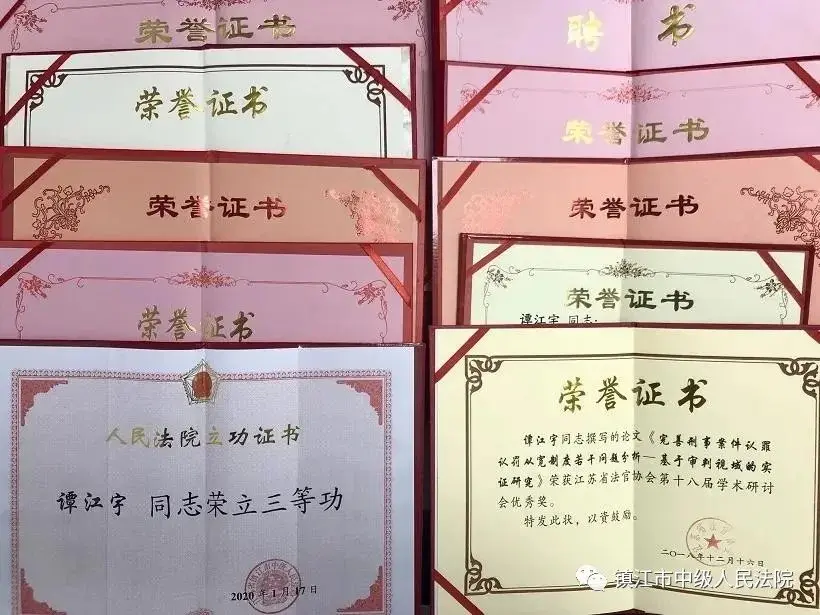 荣誉证书
荣誉证书
荣誉证书
荣誉证书
人民法院立功证书
谭江宇 同志荣立三等功
2020年1月17日
聘书
荣誉证书
荣誉证书
荣誉证书
谭江宇 同志:
荣誉证书
谭江宇同志撰写的论文《完善刑事案件认罪
认罚从宽制度若干问题分析—基于审判视域的实
证研究》荣获江苏省法官协会第十八届学术研讨
会优秀奖。
特发此状,以资鼓励。
二〇一八年十二月十六日
镇江市中级人民法院